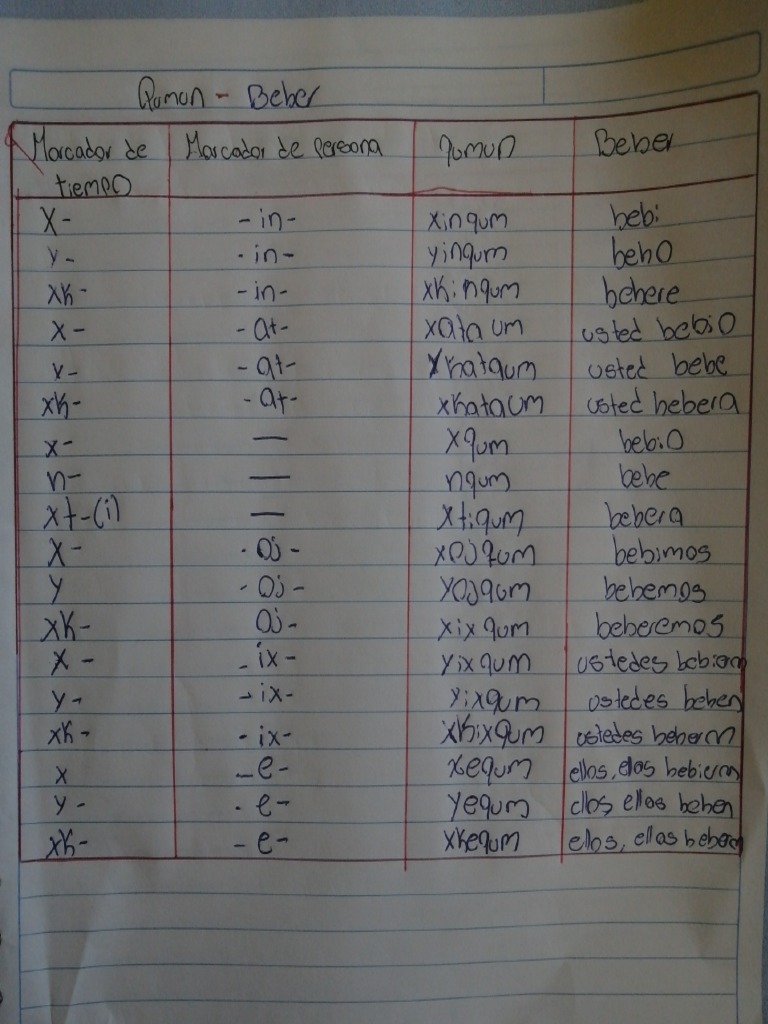 Qumun - Beber
Marcador de tiempo Marcador de persona qumun Beber
x- -in- xinqum bebi
y- -in- yinqum bebo
xk- -in- xkinqum bebere
x- -at- xataum usted bebio
y- -at- ykatqum usted bebe
xk- -at- xkataum usted bebera
x- — xqum bebio
n- — nqum bebe
xt-(i) — xtiqum bebera
x- -oj- xojqum bebimos
y -oj- yojqum bebemos
xk- oj- xixqum beberemos
x- -ix- yixqum ustedes bebieron
y- -ix- yixqum ustedes beben
xk- -ix- xkixqum ustedes
x -e- xequm ellos,
y- -e- yequm ellos ellas beben
xk- -e- xkequm ellos, ellas